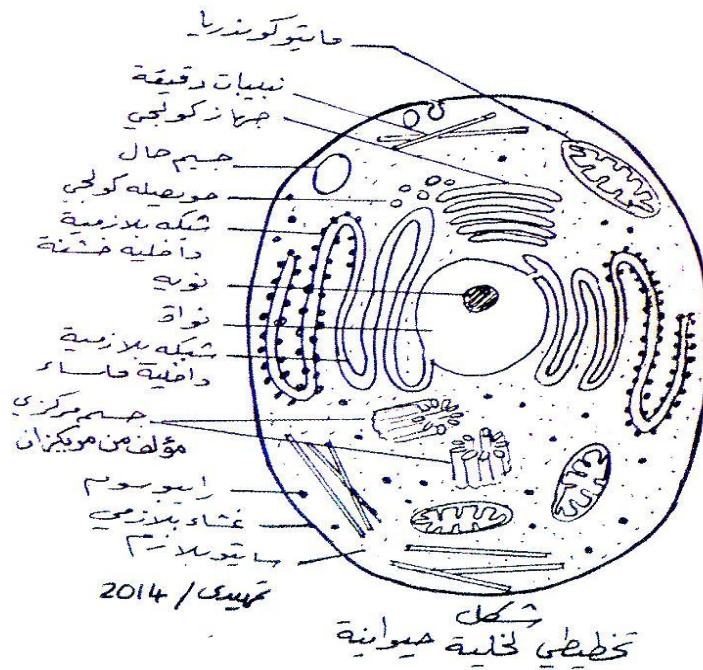 مايتوكوندريا
نبيبات دقيقة
جهاز كولجي
جسيم حال
حويصله كولجي
شبكه بلازمية
داخلية خشنة
نويه
نواة
شبكه بلازمية
داخلية ملساء
جسم مركزي
مؤلف من مريكزان
رايبوسوم
غشاء بلازمي
سايتوبلازم
تمهيدي / 2014
شكل
تخطيطي لخلية حيوانية